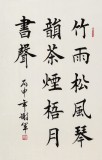 竹雨松風琴
韻茶煙梧月
書聲
丙申年